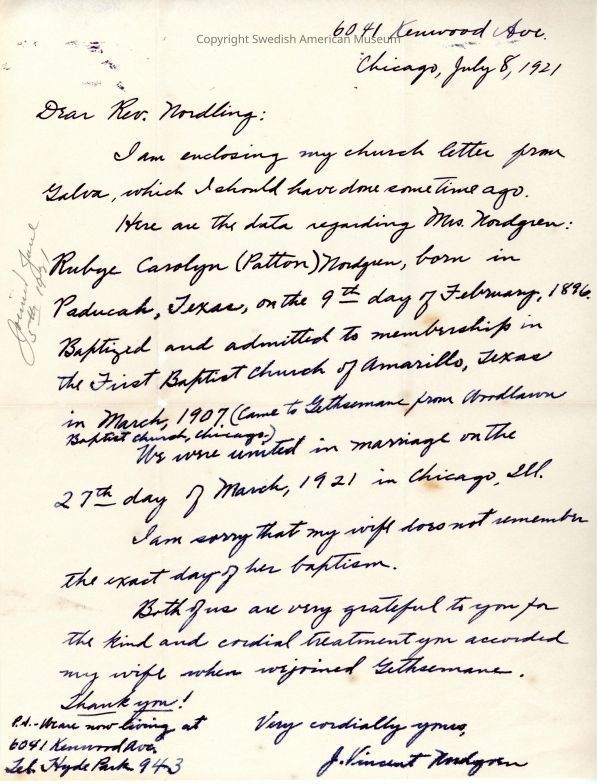 Copyright Swedish American Museum
6041 Kenwood Ave.
Chicago, July 8, 1921
Dear Rev. Nordling:
I am enclosing my church letter from
Galva, which I should have done some time ago.
Here are the data regarding Mrs. Nordgren:
Rubye Carolyn (Patton) Nordgren, born in
Paducah, Texas, on the 9th day of February, 1896.
Baptized and admitted to membership in
the First Baptist Church of Amarillo, Texas
in March, 1907. (Came to Gethsemane from Woodlawn
Baptist Church, Chicago.)
We were united in marriage on the
27th day of March, 1921 in Chicago, Ill.
I am sorry that my wife does not remember
the exact day of her baptism.
Both of us are very grateful to you for
the kind and cordial treatment you accorded
my wife when we joined Gethsemane.
Thank you!
Very cordially yours,
J. Vincent Nordgren
P.S.- We are now living at
6041 Kenwood Ave.
Tel. Hyde Park 943
Joined June
5th 1921